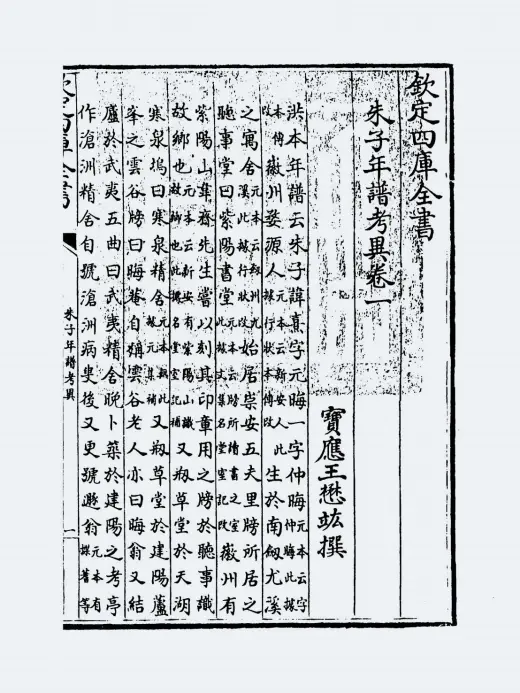 欽定四庫全書
朱子年譜考異卷一
寶應王懋竑撰
洪本年譜云朱子諱熹字元晦一字仲晦元本云字仲晦此據
本傳改徽州婺源人元本云新安人此據行狀本傳改生於南劍尤溪
之寓舍元本云劍州尤溪此據行狀改始居崇安五夫里牓所居之
聽事堂曰紫陽書堂元本云牓所讀書之室此據文集名堂室記改徽州有
紫陽山韋齋先生嘗以刻其印章用之牓於聽事識
故鄉也元本云新安有紫陽山識故鄉也此據名堂室記補又剏草堂於天湖
寒泉塢曰寒泉精舍元本缺此據元集補又剏草堂於建陽蘆
峯之雲谷牓曰晦菴自稱雲谷老人亦曰晦翁又結
廬於武夷五曲曰武夷精舍晚卜築於建陽之考亭
作滄洲精舍自號滄洲病叟後又更號遯翁元本有
欽定四庫全書
朱子年譜考異
一